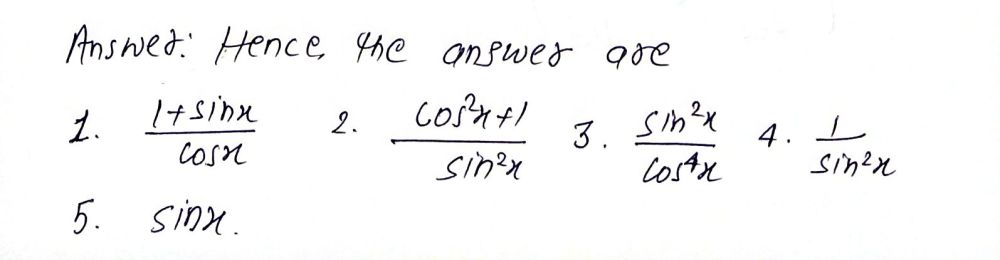 Answer: Hence, the answer are
1. (1+sinx)/(cosx) 2. (cos²x+1)/(sin²x) 3. (sin²x)/(cos⁴x) 4. 1/(sin²x)
5. sinx.